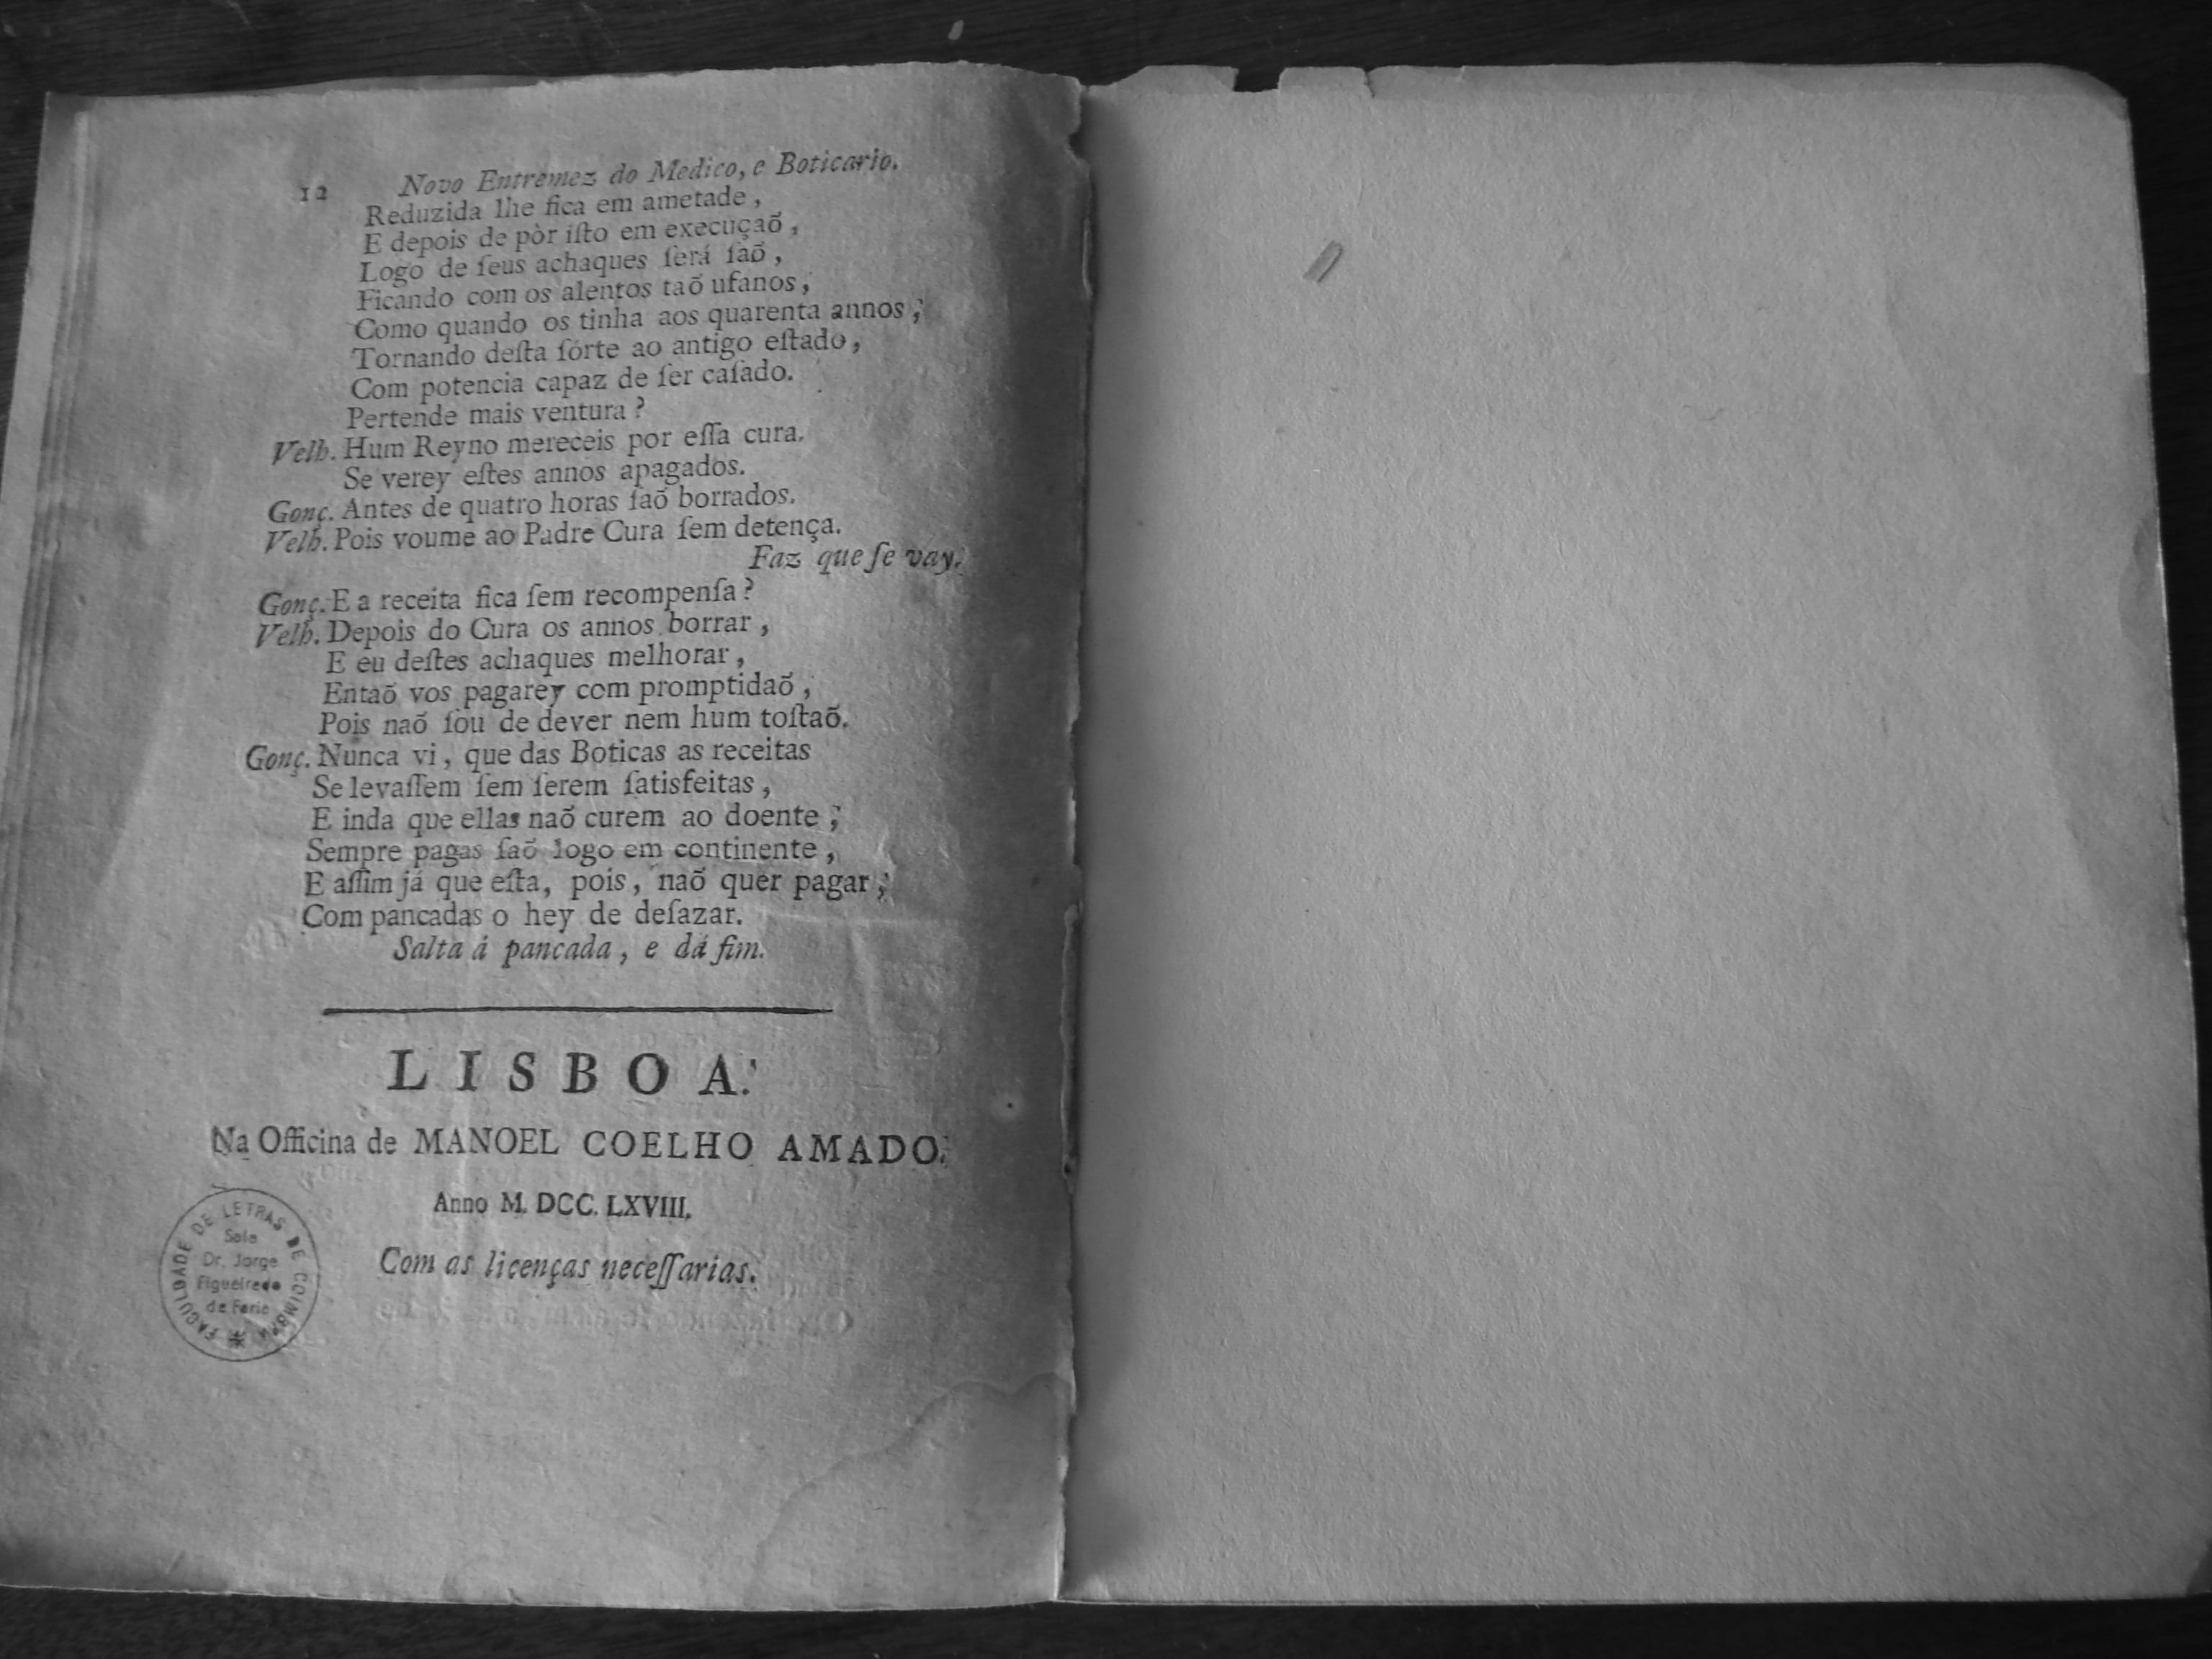 12 Novo Entremez do Medico, e Boticario.
Reduzida lhe fica em ametade,
E depois de pòr iſto em execuçaõ,
Logo de ſeus achaques ſerá ſaõ,
Ficando com os alentos taõ ufanos,
Como quando os tinha aos quarenta annos;
Tornando deſta ſórte ao antigo eſtado,
Com potencia capaz de ſer caſado.
Pertende mais ventura?
Velh. Hum Reyno mereceis por eſſa cura.
Se verey eſtes annos apagados.
Gonç. Antes de quatro horas ſaõ borrados.
Velh. Pois voume ao Padre Cura ſem detença.
Faz que ſe vay.
Gonç. E a receita fica ſem recompenſa?
Velh. Depois do Cura os annos borrar,
E eu deſtes achaques melhorar,
Entaõ vos pagarey com promptidaõ,
Pois naõ ſou de dever nem hum toſtaõ.
Gonç. Nunca vi, que das Boticas as receitas
Se levaſſem ſem ſerem ſatisfeitas,
E inda que ellas naõ curem ao doente;
Sempre pagas ſaõ logo em continente,
E aſſim já que eſta, pois, naõ quer pagar;
Com pancadas o hey de deſazar.
Salta á pancada, e dá fim.
LISBOA:
Na Officina de MANOEL COELHO AMADO.
Anno M. DCC. LXVIII.
Com as licenças neceſſarias.
FACULDADE DE LETRAS DE COIMBRA
Sala
Dr. Jorge
Figueiredo
de Faria